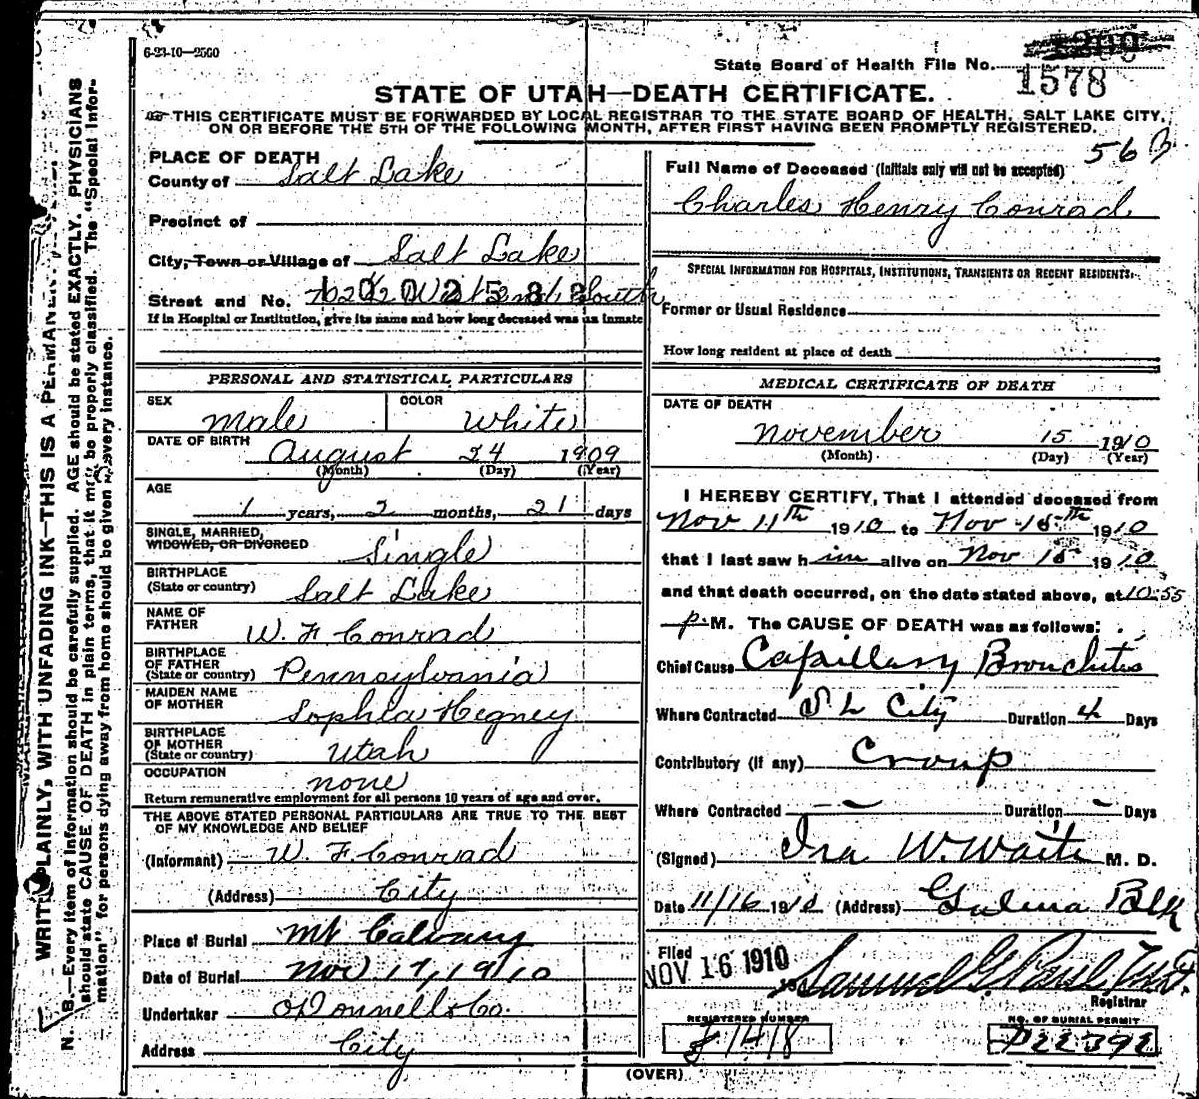 6-23-10-2500
State Board of Health File No.
1578
STATE OF UTAH—DEATH CERTIFICATE.
THIS CERTIFICATE MUST BE FORWARDED BY LOCAL REGISTRAR TO THE STATE BOARD OF HEALTH, SALT LAKE CITY,
ON OR BEFORE THE 5TH OF THE FOLLOWING MONTH, AFTER FIRST HAVING BEEN PROMPTLY REGISTERED.
56 B
PLACE OF DEATH
County of Salt Lake
Precinct of
City, Town or Village of Salt Lake
Street and No. South
If in Hospital or Institution, give its name and how long deceased was an inmate
PERSONAL AND STATISTICAL PARTICULARS
SEX Male COLOR White
DATE OF BIRTH August 24 1909
(Month) (Day) (Year)
AGE
1 years, 2 months, 21 days
SINGLE, MARRIED,
WIDOWED, OR DIVORCED Single
BIRTHPLACE
(State or country) Salt Lake
NAME OF
FATHER W. F Conrad
BIRTHPLACE
OF FATHER
(State or country) Pennsylvania
MAIDEN NAME
OF MOTHER Sophia Hegney
BIRTHPLACE
OF MOTHER
(State or country) Utah
OCCUPATION none
Return remunerative employment for all persons 10 years of age and over.
THE ABOVE STATED PERSONAL PARTICULARS ARE TRUE TO THE BEST
OF MY KNOWLEDGE AND BELIEF
(Informant) W. F. Conrad
(Address) City
Place of Burial Mt Calvary
Date of Burial Nov 17, 1910
Undertaker O'Donnell & Co.
Address City
Full Name of Deceased (Initials only will not be accepted)
Charles Henry Conrad
SPECIAL INFORMATION FOR HOSPITALS, INSTITUTIONS, TRANSIENTS OR RECENT RESIDENTS.
Former or Usual Residence
How long resident at place of death
MEDICAL CERTIFICATE OF DEATH
DATE OF DEATH
November 15 1910
(Month) (Day) (Year)
I HEREBY CERTIFY, That I attended deceased from
Nov 11th 1910 to Nov 15th 1910
that I last saw him alive on Nov 15 1910
and that death occurred, on the date stated above, at 10:55
p. M. The CAUSE OF DEATH was as follows:
Chief Cause Capillary Bronchitis
Where Contracted S L City Duration 4 Days
Contributory (if any) Croup
Where Contracted Duration Days
(Signed) Ira W. Waite M. D.
Date 11/16 1910 (Address) Galena Blk
Filed
NOV 16 1910 Samuel G. Paul
Registrar
REGISTERED NUMBER NO. OF BURIAL PERMIT
1418 P22392
(OVER)
WRITE PLAINLY, WITH UNFADING INK—THIS IS A PERMANENT
N. B.—Every item of information should be carefully supplied. AGE should be stated EXACTLY. PHYSICIANS
should state CAUSE OF DEATH in plain terms, that it may be properly classified. The "Special Infor-
mation" for persons dying away from home should be given in every instance.